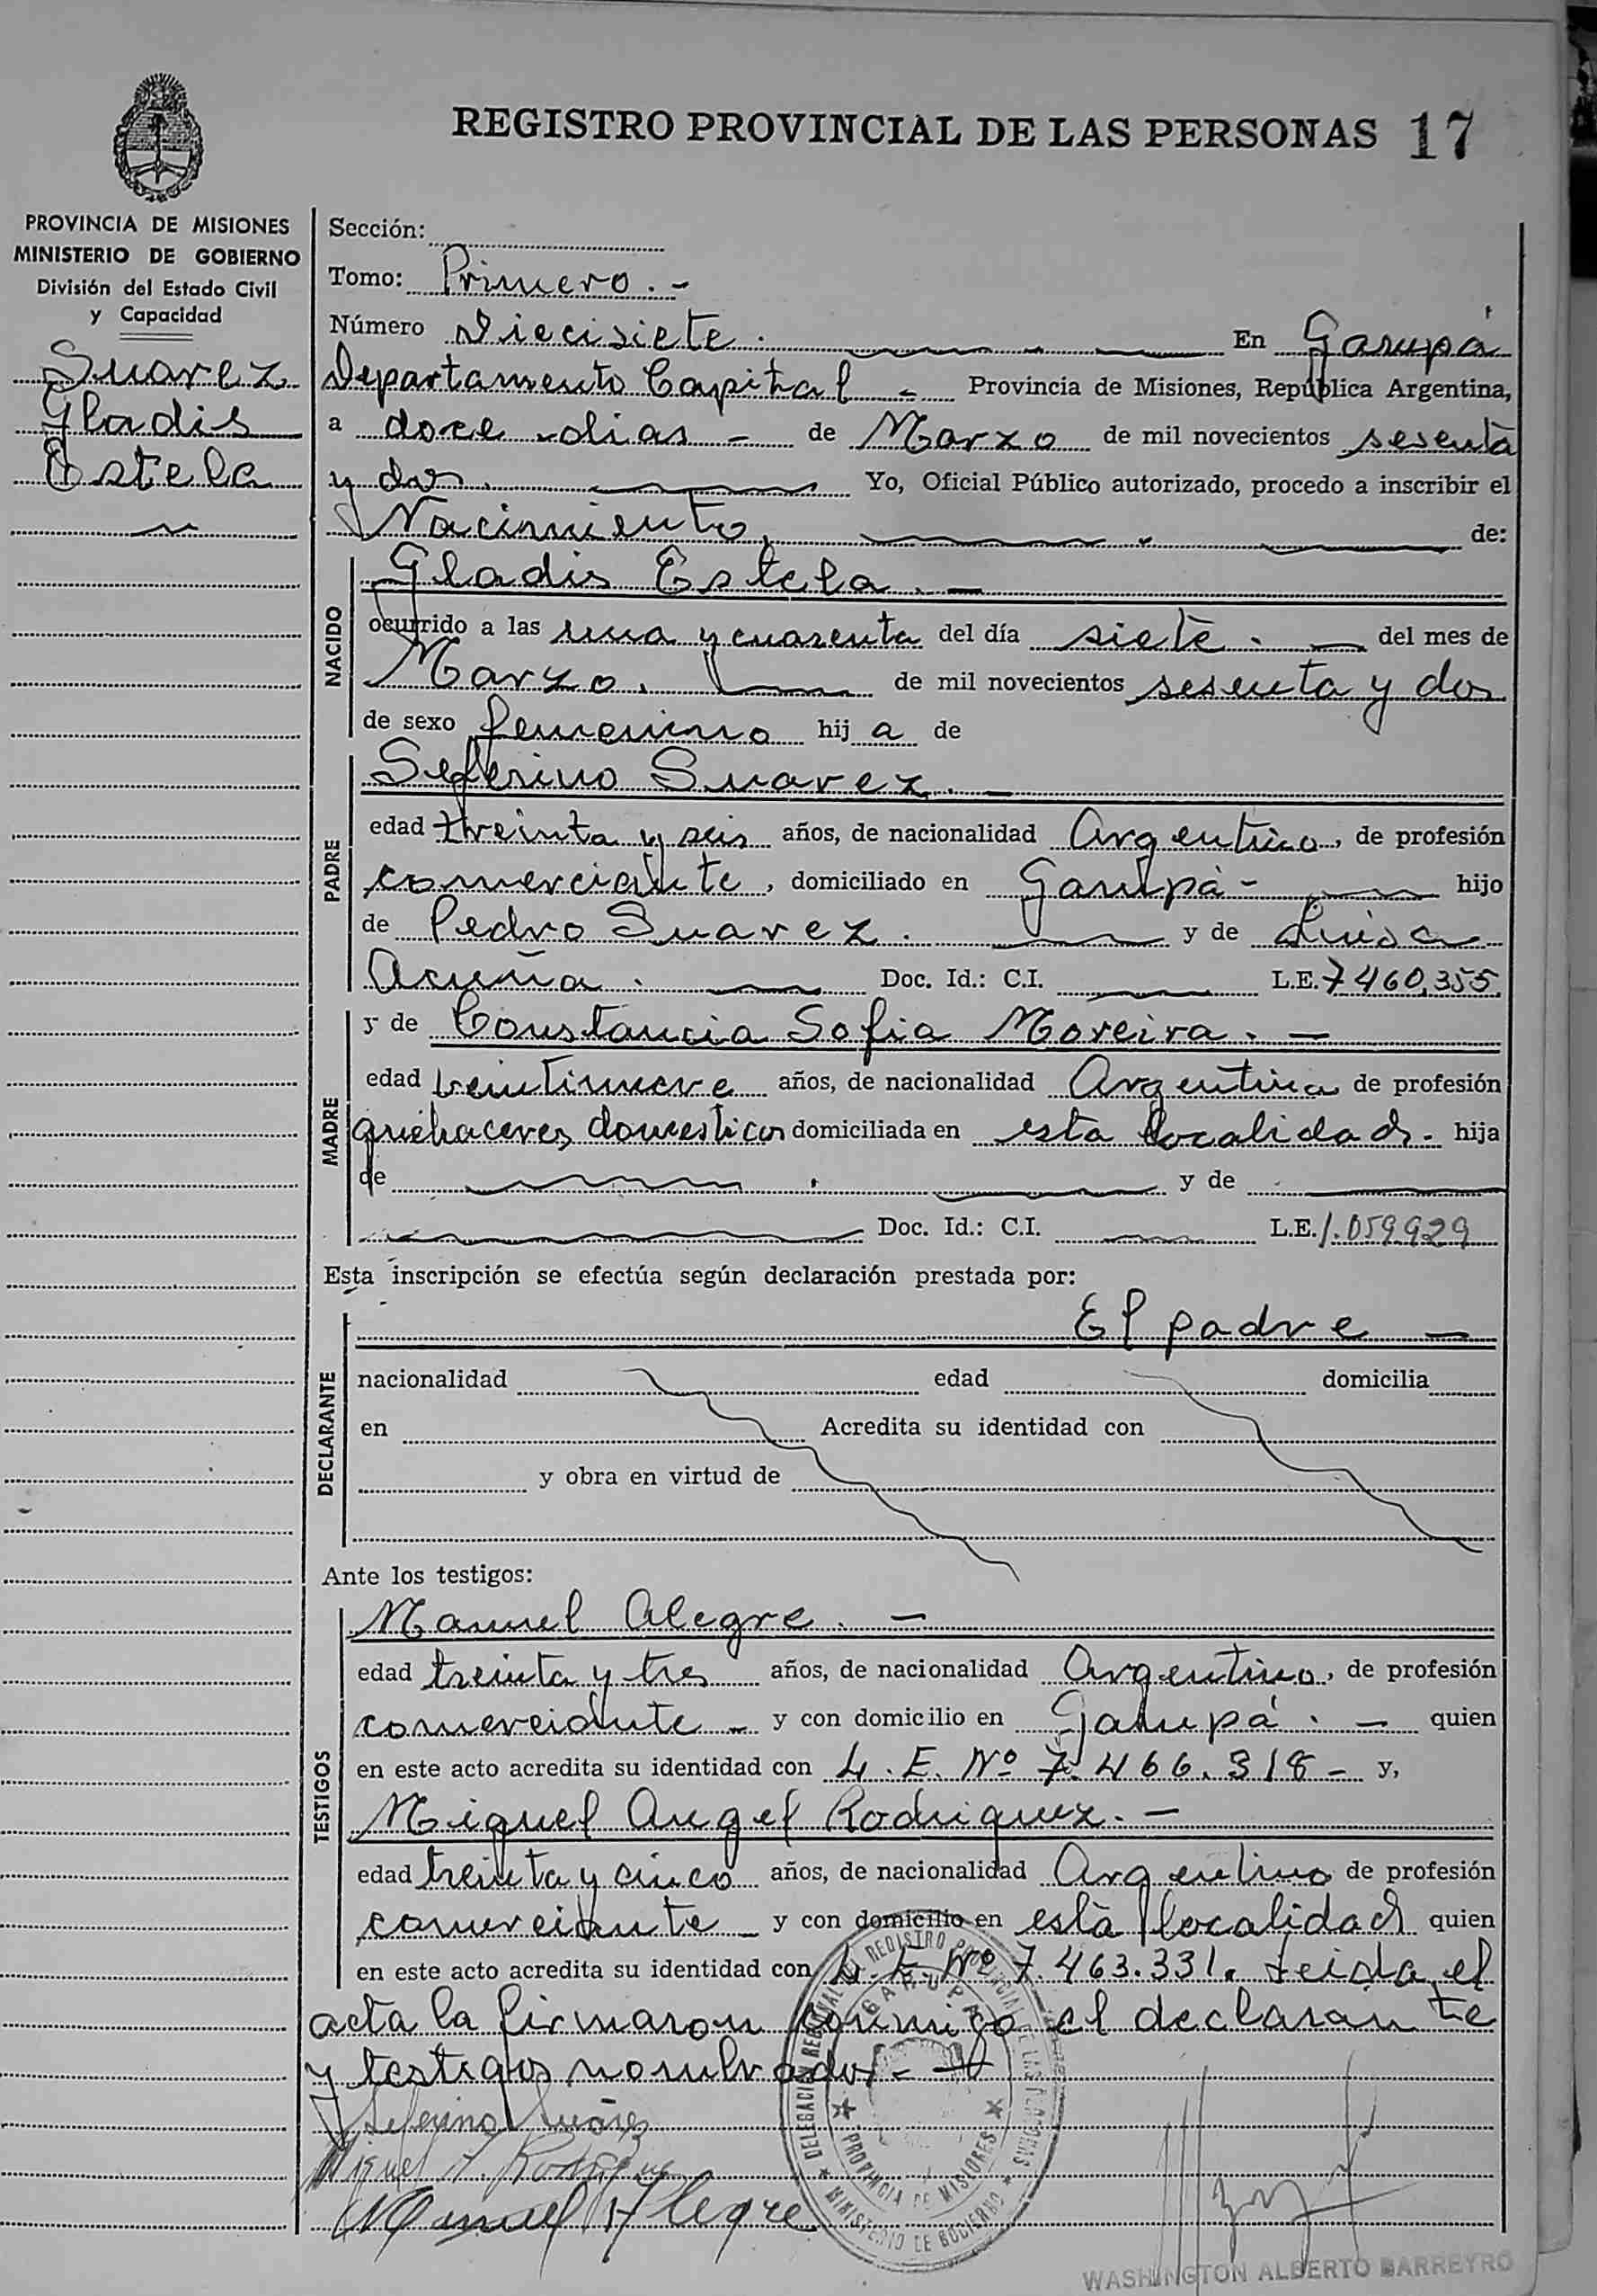 REGISTRO PROVINCIAL DE LAS PERSONAS 17
PROVINCIA DE MISIONES
MINISTERIO DE GOBIERNO
División del Estado Civil
y Capacidad
Suarez
Gladis
Estela
Sección:
Tomo: Primero.-
Número Diecisiete. En Garupá
Departamento Capital - Provincia de Misiones, República Argentina,
a doce dias - de Marzo de mil novecientos sesenta
y dos. Yo, Oficial Público autorizado, procedo a inscribir el
Nacimiento, de:
NACIDO
Gladis Estela.-
ocurrido a las una y cuarenta del día siete. del mes de
Marzo. de mil novecientos sesenta y dos
de sexo femenino hij a de
PADRE
Seferino Suarez.-
edad treinta y seis años, de nacionalidad Argentino, de profesión
comerciante, domiciliado en Garupá- hijo
de Pedro Suarez. y de Luisa
Acuña. Doc. Id.: C.I. L.E. 7460,355
MADRE
y de Constancia Sofia Moreira.-
edad veintinueve años, de nacionalidad Argentina de profesión
quehaceres domesticos domiciliada en esta localidad.- hija
de y de
Doc. Id.: C.I. L.E. 1.059929
Esta inscripción se efectúa según declaración prestada por:
DECLARANTE
El padre -
nacionalidad edad domicilia
en Acredita su identidad con
y obra en virtud de
Ante los testigos:
TESTIGOS
Manuel Alegre.-
edad treinta y tres años, de nacionalidad Argentino, de profesión
comerciante - y con domicilio en Garupá.- quien
en este acto acredita su identidad con L.E. Nº 7.466.318- y,
Miguel Angel Rodriguez.-
edad treinta y cinco años, de nacionalidad Argentino de profesión
comerciante - y con domicilio en esta localidad quien
en este acto acredita su identidad con L.E. Nº 7.463.331. Leida el
acta la firmaron conmigo el declarante
y testigos nombrados.-
Seferino Suárez
Miguel A. Rodriguez
Manuel Alegre
DELEGACION REGIONAL REGISTRO PROVINCIAL DE LAS PERSONAS
GARUPA
PROVINCIA DE MISIONES
MINISTERIO DE GOBIERNO
WASHINGTON ALBERTO BARREYRO